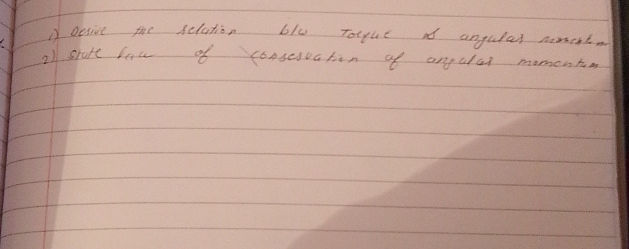 1) Derive the relation b/w Torque & angular momentum
2) State law of conservation of angular momentum